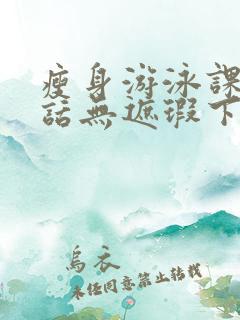 瘦身游泳課
話無遮瑕下
烏衣
未經同意禁止轉載